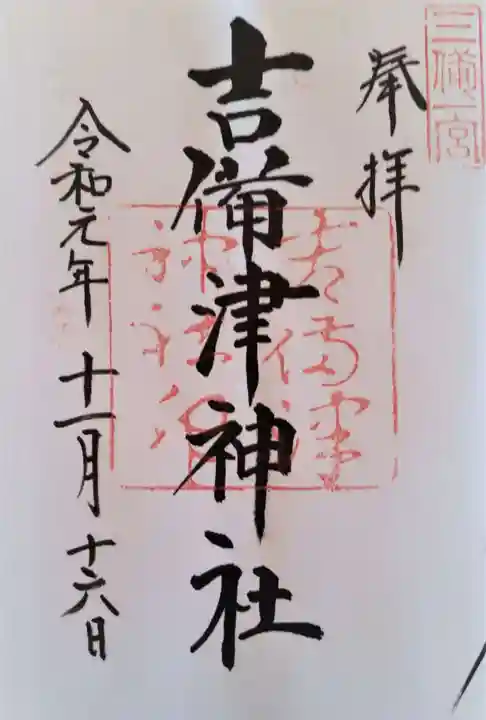 三備一宮
奉拝
吉備津神社
令和元年十一月十六日